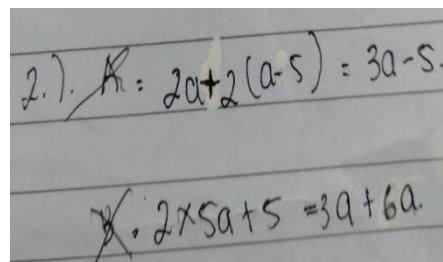 2.). A = 2a+2(a-5) = 3a-5.
B. 2×5a+5 =3a+6a.